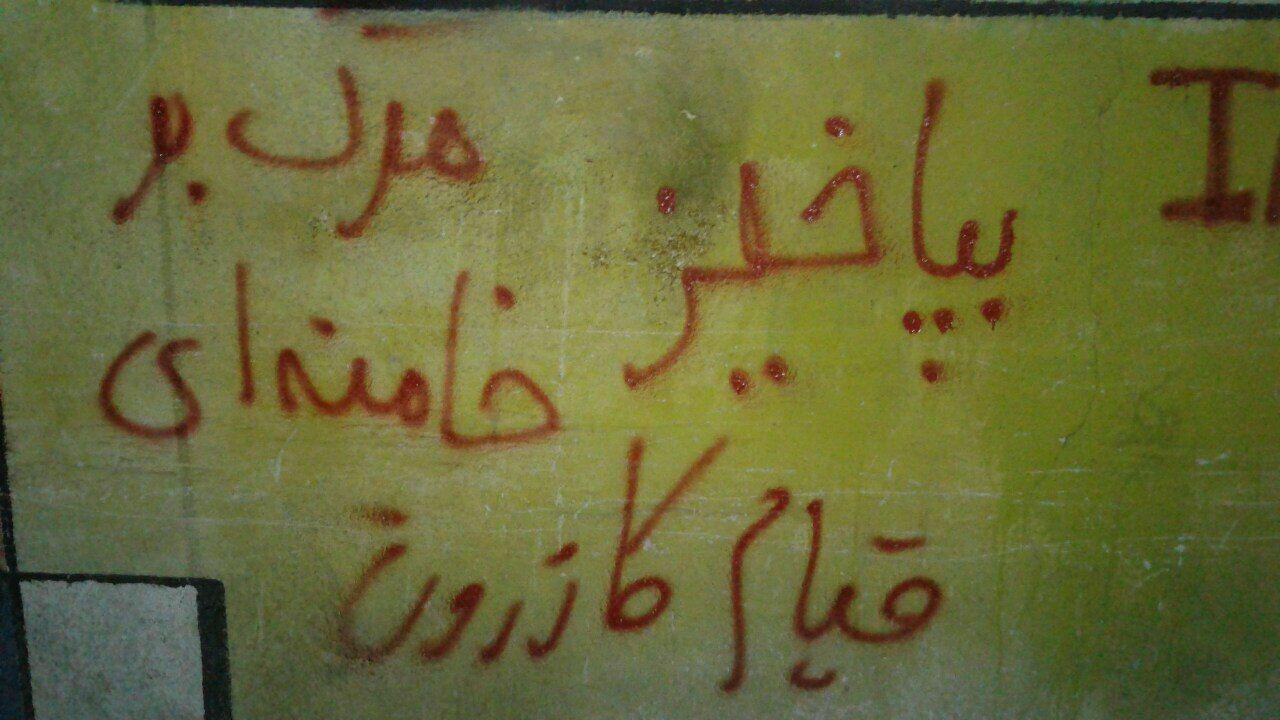 بپاخیز
مرگ بر
خامنه‌ای
قیام کازرون